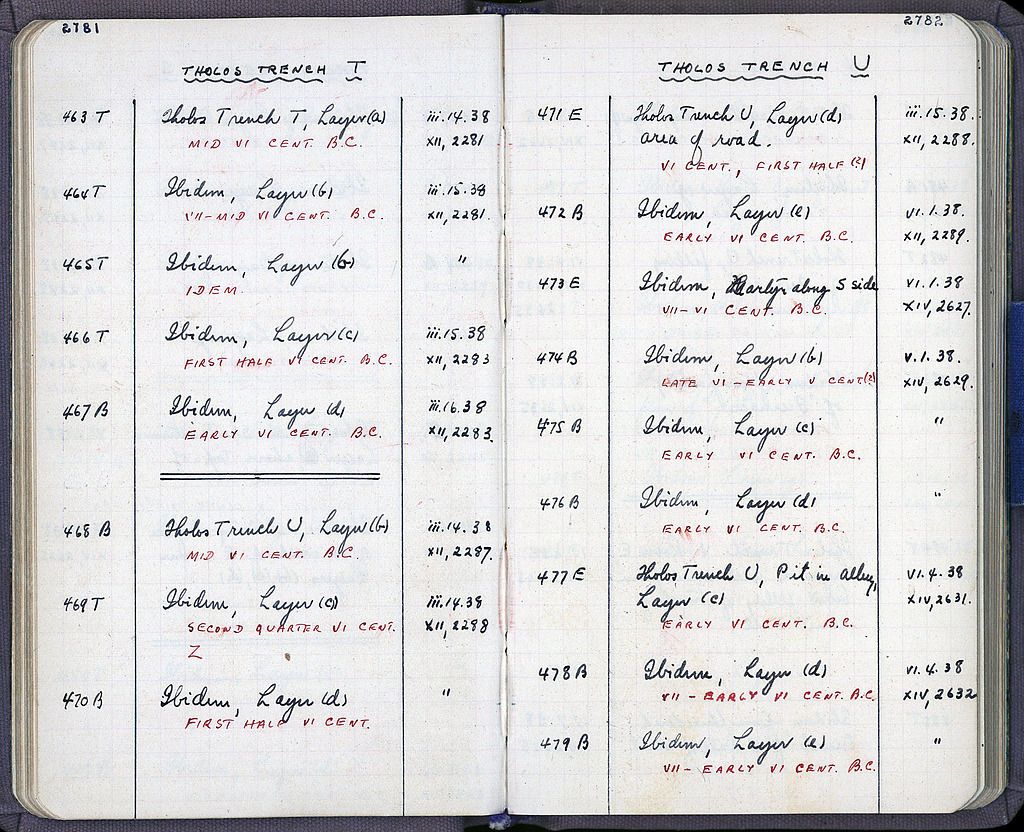 2781
THOLOS TRENCH T
463 T Tholos Trench T, Layer (a) iii.14.38
MID VI CENT. B.C. XII, 2281
464 T Ibidem, Layer (b) iii.15.38
VII-MID VI CENT. B.C. XII, 2281.
465 T Ibidem, Layer (b) "
IDEM
466 T Ibidem, Layer (c) iii.15.38
FIRST HALF VI CENT. B.C. XII, 2283
467 B Ibidem, Layer (d) iii.16.38
EARLY VI CENT. B.C. XII, 2283
468 B Tholos Trench U, Layer (b) iii.14.38
MID VI CENT. B.C. XII, 2287.
469 T Ibidem, Layer (c) iii.14.38
SECOND QUARTER VI CENT. XII, 2288
Z
470 B Ibidem, Layer (d) "
FIRST HALF VI CENT.
2782
THOLOS TRENCH U
471 E Tholos Trench U, Layer (d) iii.15.38.
area of road. XII, 2288.
VI CENT., FIRST HALF (?)
472 B Ibidem, Layer (e) VI.1.38.
EARLY VI CENT. B.C. XII, 2289.
473 E Ibidem, along S side VI.1.38
VII-VI CENT. B.C. XIV, 2627.
474 B Ibidem, Layer (b) V.1.38.
LATE VI-EARLY V CENT (?) XIV, 2629.
475 B Ibidem, Layer (c) "
EARLY VI CENT. B.C.
476 B Ibidem, Layer (d) "
EARLY VI CENT. B.C.
477 E Tholos Trench U, Pit in alley, VI.4.38
Layer (c) XIV, 2631.
EARLY VI CENT. B.C.
478 B Ibidem, Layer (d) VI.4.38
VII - EARLY VI CENT. B.C. XIV, 2632
479 B Ibidem, Layer (e) "
VII - EARLY VI CENT. B.C.